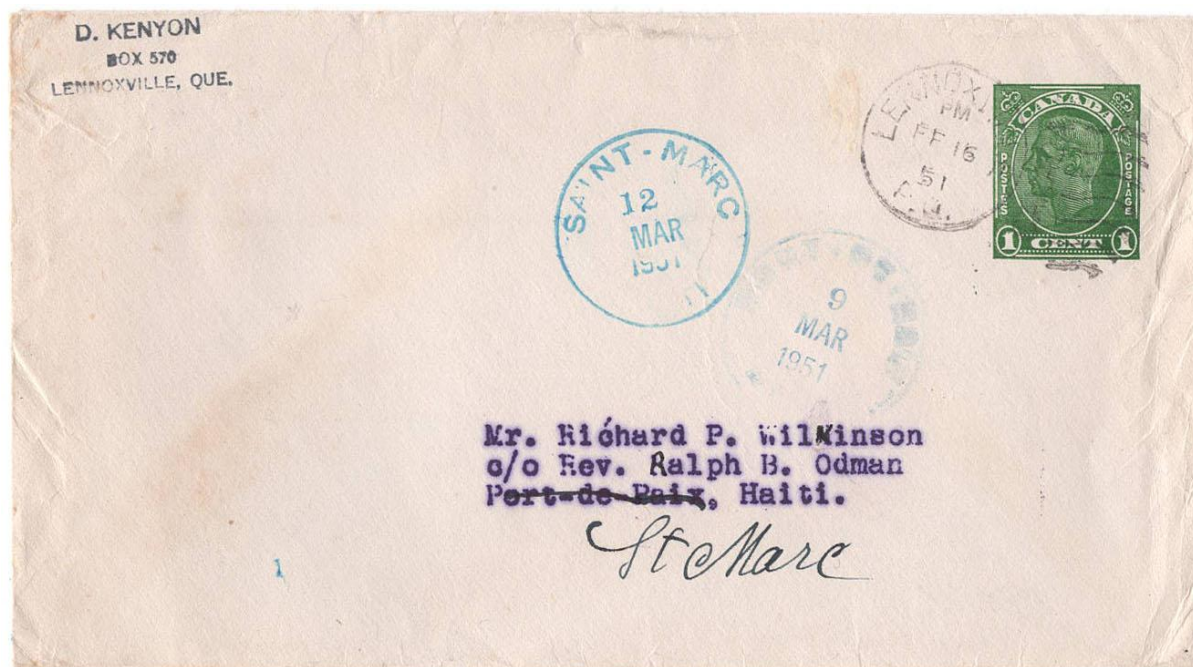 D. KENYON
BOX 570
LENNOXVILLE, QUE.
LENNOXV
PM
FE 16
51
P.Q.
CANADA
POSTES
POSTAGE
1 CENT 1
SAINT-MARC
12
MAR
1951
9
MAR
1951
Mr. Richard P. Wilkinson
c/o Rev. Ralph B. Odman
Port-de-Paix, Haiti.
St Marc
1